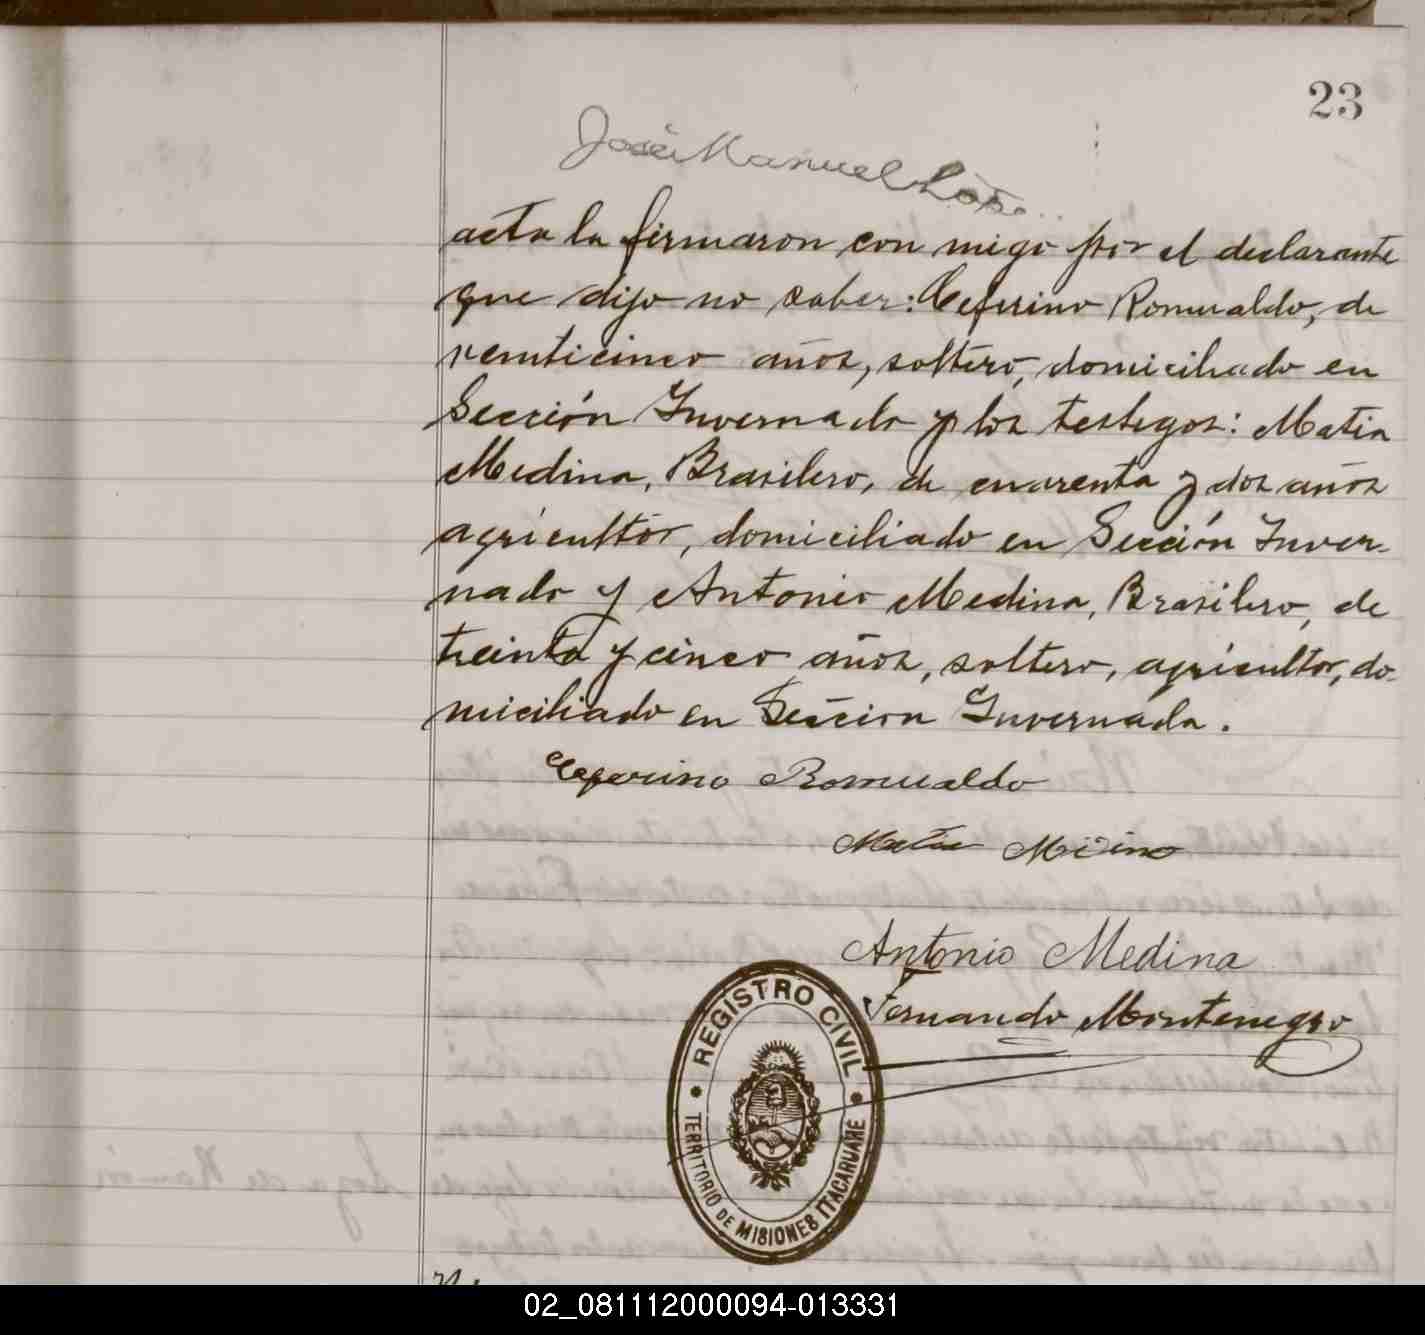 23
José Manuel
acta la firmaron con migo por el declarante
que dijo no saber: Ceferino Romualdo, de
veinticinco años, soltero, domiciliado en
Sección Invernada y los testigos: Matia
Medina, Brasilero, de cuarenta y dos años
agricultor, domiciliado en Sección Inver-
nada y Antonio Medina, Brasilero, de
treinta y cinco años, soltero, agricultor, do-
miciliado en Sección Invernada.
Ceferino Romualdo
Matia
Antonio Medina
Fernando Montenegro
REGISTRO CIVIL
TERRITORIO DE MISIONES ITACARUARE
02_081112000094-013331